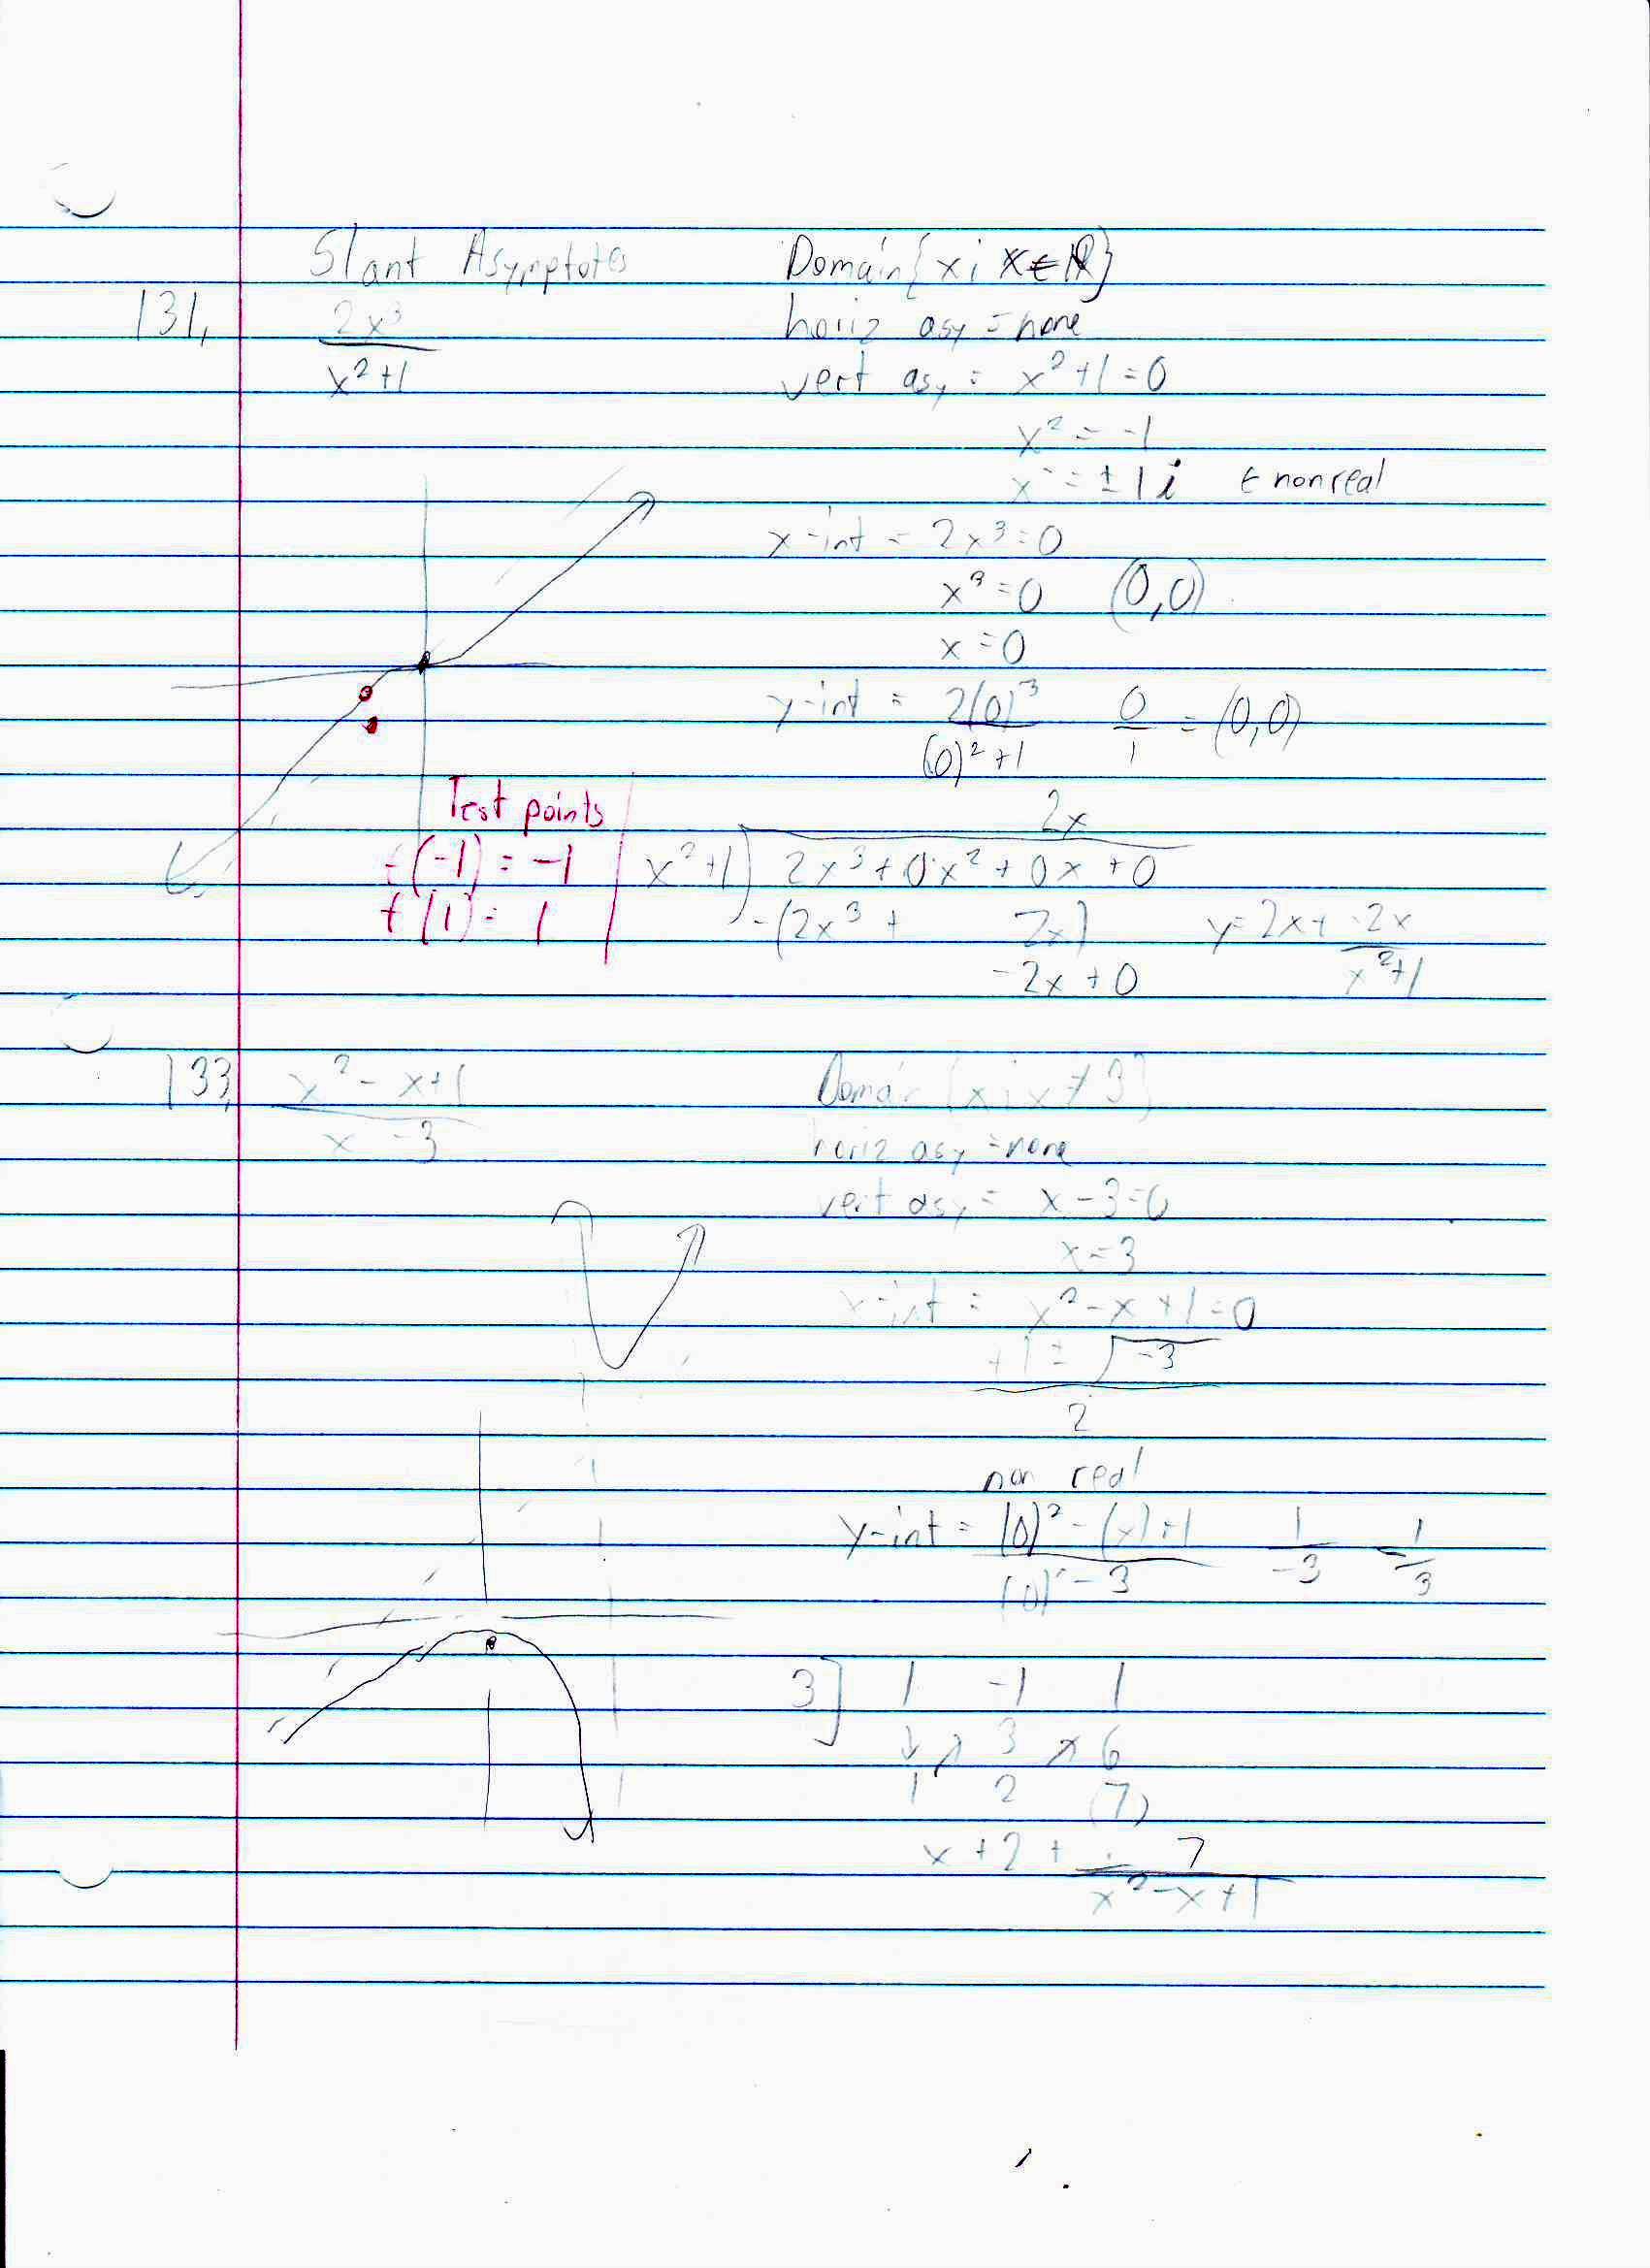 Slant Asymptotes
131. 2x³
x²+1
Domain {x ; x ∈ ℝ}
horiz asy = none
vert asy = x²+1=0
x² = -1
x = ±1i ← nonreal
x-int = 2x³=0
x³=0 (0,0)
x=0
y-int = 2(0)³ 0 = (0,0)
(0)²+1 1
Test points
f(-1) = -1
f(1) = 1
2x
x²+1 ) 2x³+0x²+0x+0
-(2x³+ 2x)
-2x+0
y=2x+ -2x
x²+1
133. x²-x+1
x-3
Domain {x ; x≠3}
horiz asy = none
vert asy = x-3=0
x=3
x-int = x²-x+1=0
+1 ± √-3
2
non real
y-int = (0)²-(x)+1 1 -1
(0)-3 -3 3
3] 1 -1 1
↓ ↗ 3 ↗ 6
1 2 (7)
x+2+ 7
x²-x+1